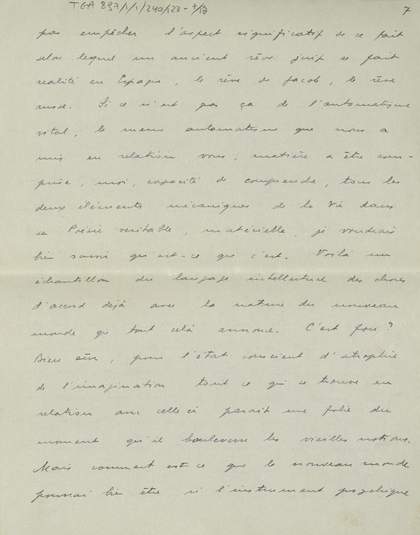 TGA 897/1/1/240/28-9/13
7
pas empêcher l'aspect significatif de ce fait
selon lequel un ancient rêve juif se fait
realité en Espagne, le rêve de Jacob, le rêve
Si ce n'est pas ça de l'automatique
vital, le meme automatique que nous a
mis en relation vous, matière a être com-
prise, moi, capacité de comprendre, tous les
deux éléments mécaniques de la Vie dans
sa Poésie veritable, matérielle, je voudrais
bien savoir qu'est-ce que c'est. Voilà un
échantillon du langage intellectuel des choses
d'accord déjà avec la nature du nouveau
monde qe tout celà annonce. C'est fou?
Bien sûr, pour l'état conscient d'atrophie
de l'imagination tout ce qi se trouve en
relation avec celle ci parait une folie du
moment qu'il bouleverse les vieilles notions.
Mais comment est-ce que le nouveau monde
pourrai bien être si l'instrument psychique